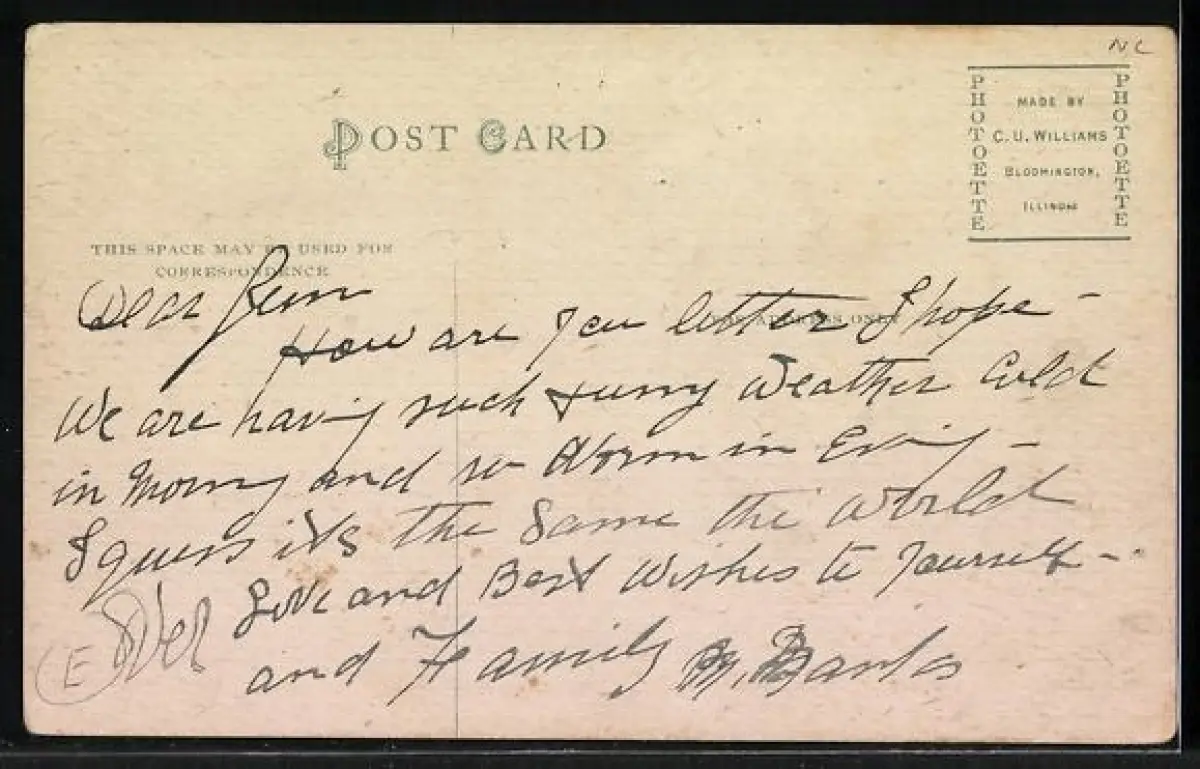 NC
POST CARD
PHOTOETTE
MADE BY
C. U. WILLIAMS
BLOOMINGTON,
ILLINOIS
PHOTOETTE
THIS SPACE MAY BE USED FOR
CORRESPONDENCE
Dear
How are you better I hope -
We are having such funny Weather Cold
in Morning and so Worm in Eving -
I guess it's the Same the World
Over Love and Best Wishes to Yourself -
and Family M. Banks
E